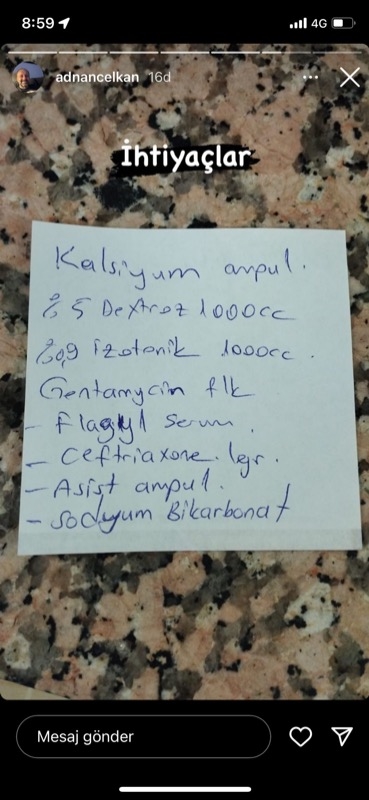 8:59
4G
adnancelkan 16d
İhtiyaçlar
Kalsiyum ampul.
% 5 Dextroz 1000cc
%0,9 izotonik 1000cc.
Gentamycin flk
- Flagyl Serum.
- Ceftriaxone. 1gr.
- Asist ampul.
- Sodyum Bikarbonat
Mesaj gönder